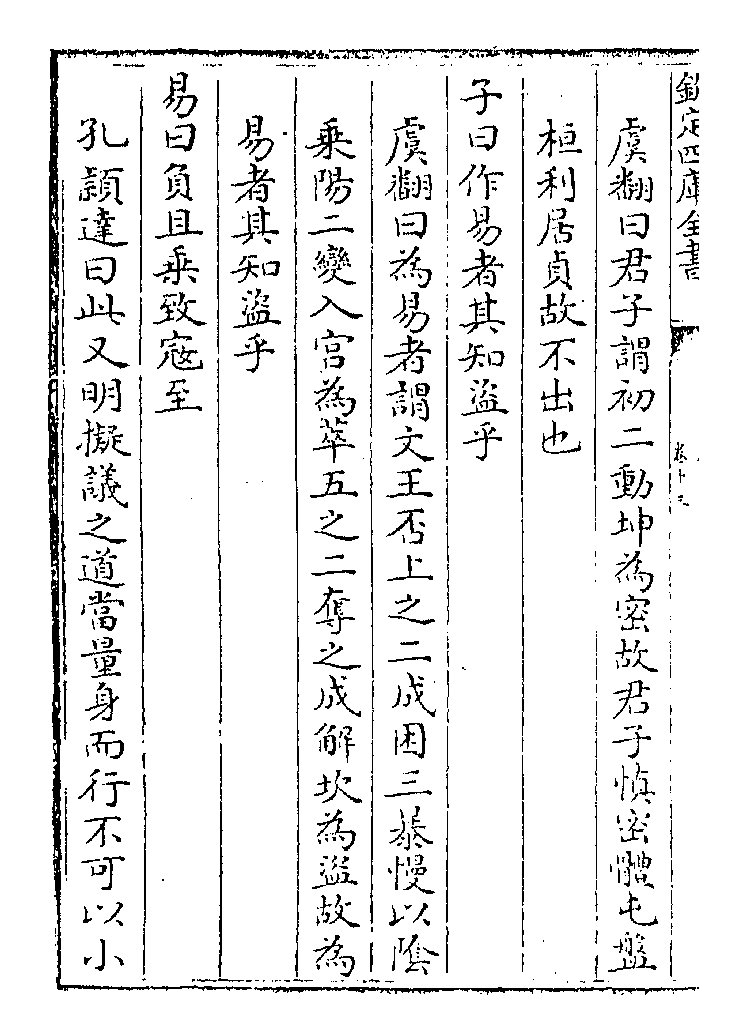 欽定四庫全書
卷十三
虞翻曰君子謂初二動坤為密故君子慎密體屯盤
桓利居貞故不出也
子曰作易者其知盜乎
虞翻曰為易者謂文王否上之二成困三暴慢以陰
乘陽二變入宫為萃五之二奪之成解坎為盜故為
易者其知盜乎
易曰負且乘致寇至
孔頴達曰此又明擬議之道當量身而行不可以小